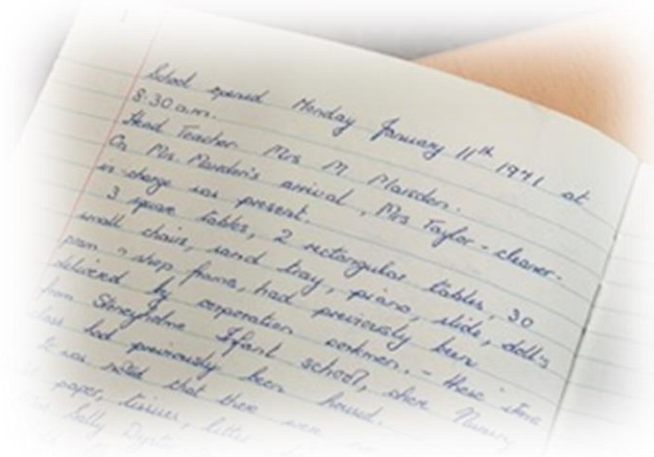 School opened Monday January 11th 1971 at
8.30 a.m.
Head Teacher Mrs M Marsden.
On Mrs. Marsden's arrival, Mrs Taylor - cleaner-
in-charge was present.
3 square tables, 2 rectangular tables, 30
small chairs, sand tray, piano, slide, doll's
pram & shop frame, had previously been
delivered by corporation workmen. - these items
from Stoneyholme Infant school, where Nursery
class had previously been housed.
It was noted that there were no
paper, tissues,
Sally